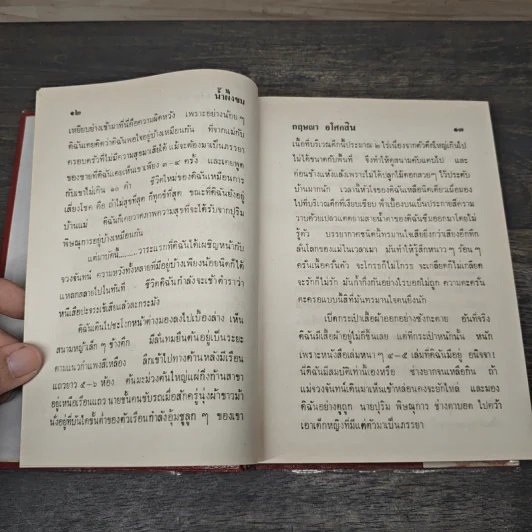 ๑๒
น้ำผึ้งขม
เหยียบย่างเข้ามาที่นี่คือความผิดหวัง เพราะอย่างน้อย ๆ
ดิฉันเคยคิดว่าดิฉันพอใจอยู่บ้างเหมือนกัน ที่จากแม่กับ
ครอบครัวที่ไม่มีความสุขมาเสียได้ แม้จะต้องมาเป็นภรรยา
ของชายที่ดิฉันเคยเห็นเขาเพียง ๓-๔ ครั้ง และเคยพูด
กับเขาไม่เกิน ๑๐ คำ ชีวิตใหม่ของดิฉันเหมือนการ
เสี่ยงโชค คือ ถ้าไม่สุขที่สุด ก็ทุกข์ที่สุด ขณะที่ดิฉันยังอยู่
บ้านแม่ ดิฉันก็เคยวาดภาพความสุขที่จะได้รับจากปุริม
พิษณุการอยู่บ้างเหมือนกัน
แต่มาบัดนี้.........วาระแรกที่ดิฉันได้เผชิญหน้ากับ
จวงจันทน์ ความหวังทั้งหลายที่มีอยู่บ้างเพียงน้อยนิดก็ได้
แหลกสลายไปในทันที ชีวิตดิฉันกำลังจะเข้าตำราว่า
หนีเสือปะจระเข้เสียแล้วละกระมัง
ดิฉันเดินไปชะโงกหน้าต่างมองลงไปเบื้องล่าง เห็น
สนามหญ้าเล็ก ๆ ข้างตึก มีลั่นทมยืนต้นอยู่เป็นระยะ
ตามแนวกำแพงสี่เหลี่ยม ลึกเข้าไปทางด้านหลังมีเรือน
แถวยาว ๕-๖ ห้อง ต้นมะม่วงต้นใหญ่แผ่กิ่งก้านสาขา
อยู่เหนือเรือนแถว นายชื่นคนขับรถเมื่อสักครู่นุ่งผ้าขาวม้า
นั่งอยู่ที่บันไดขั้นต่ำของตัวเรือนกำลังอุ้มชูลูก ๆ ของเขา
กฤษณา อโศกสิน
๑๓
เนื้อที่บริเวณตึกนี้ประมาณ ๒ ไร่เนื่องจากตัวตึกใหญ่เกินไป
ไม่ได้ขนาดกับพื้นที่ จึงทำให้ดูสนามคับแคบไป และ
ค่อนข้างแห้งแล้งเพราะไม่ได้ปลูกไม้ดอกสวยๆ ไว้ประดับ
บ้านมากนัก เวลานี้หัวใจของดิฉันเหลือนิดเดียวเมื่อมอง
ไปที่บริเวณตึกที่เงียบเชียบ ฟ้าเบื้องบนเป็นประกายสีคราม
วาบด้วยเปลวแดดยามสายน้ำตาของดิฉันซึมออกมาโดยไม่
รู้ตัว บรรยากาศชนิดนี้ทรมานใจเสียยิ่งกว่าเสียงอึกทึก
ลั่นโลกของแม่ในเวลาเมา มันทำให้รู้สึกหนาว ๆ ร้อน ๆ
ครั่นเนื้อครั่นตัว จะโกรธก็ไม่โกรธ จะเกลียดก็ไม่เกลียด
จะรักก็ไม่รัก มันก้ำกึ่งกันอย่างไรบอกไม่ถูก ความคะครั่น
คะครอแบบนี้สิที่มันทรมานใจคนยิ่งนัก
เปิดกระเป๋าเสื้อผ้าออกอย่างซังกะตาย อันที่จริง
ดิฉันมีเสื้อผ้าอยู่ไม่กี่ชิ้นเลย แต่ที่กระเป๋าหนักนั้น หนัก
เพราะหนังสือเล่มหนา ๆ ๔-๕ เล่มที่ดิฉันมีอยู่ อนิจจา!
นี่ดิฉันมีสมบัติเท่านี้เองหรือ ช่างยากจนเหลือเกิน ถ้า
แม่จวงจันทน์เดินมาเห็นเข้าหล่อนคงจะยักไหล่ และมอง
ดิฉันอย่างดูถูก นายปุริม พิษณุการ ช่างตาบอด ไปคว้า
เอาเด็กหญิงที่มีแต่ตัวมาเป็นภรรยา